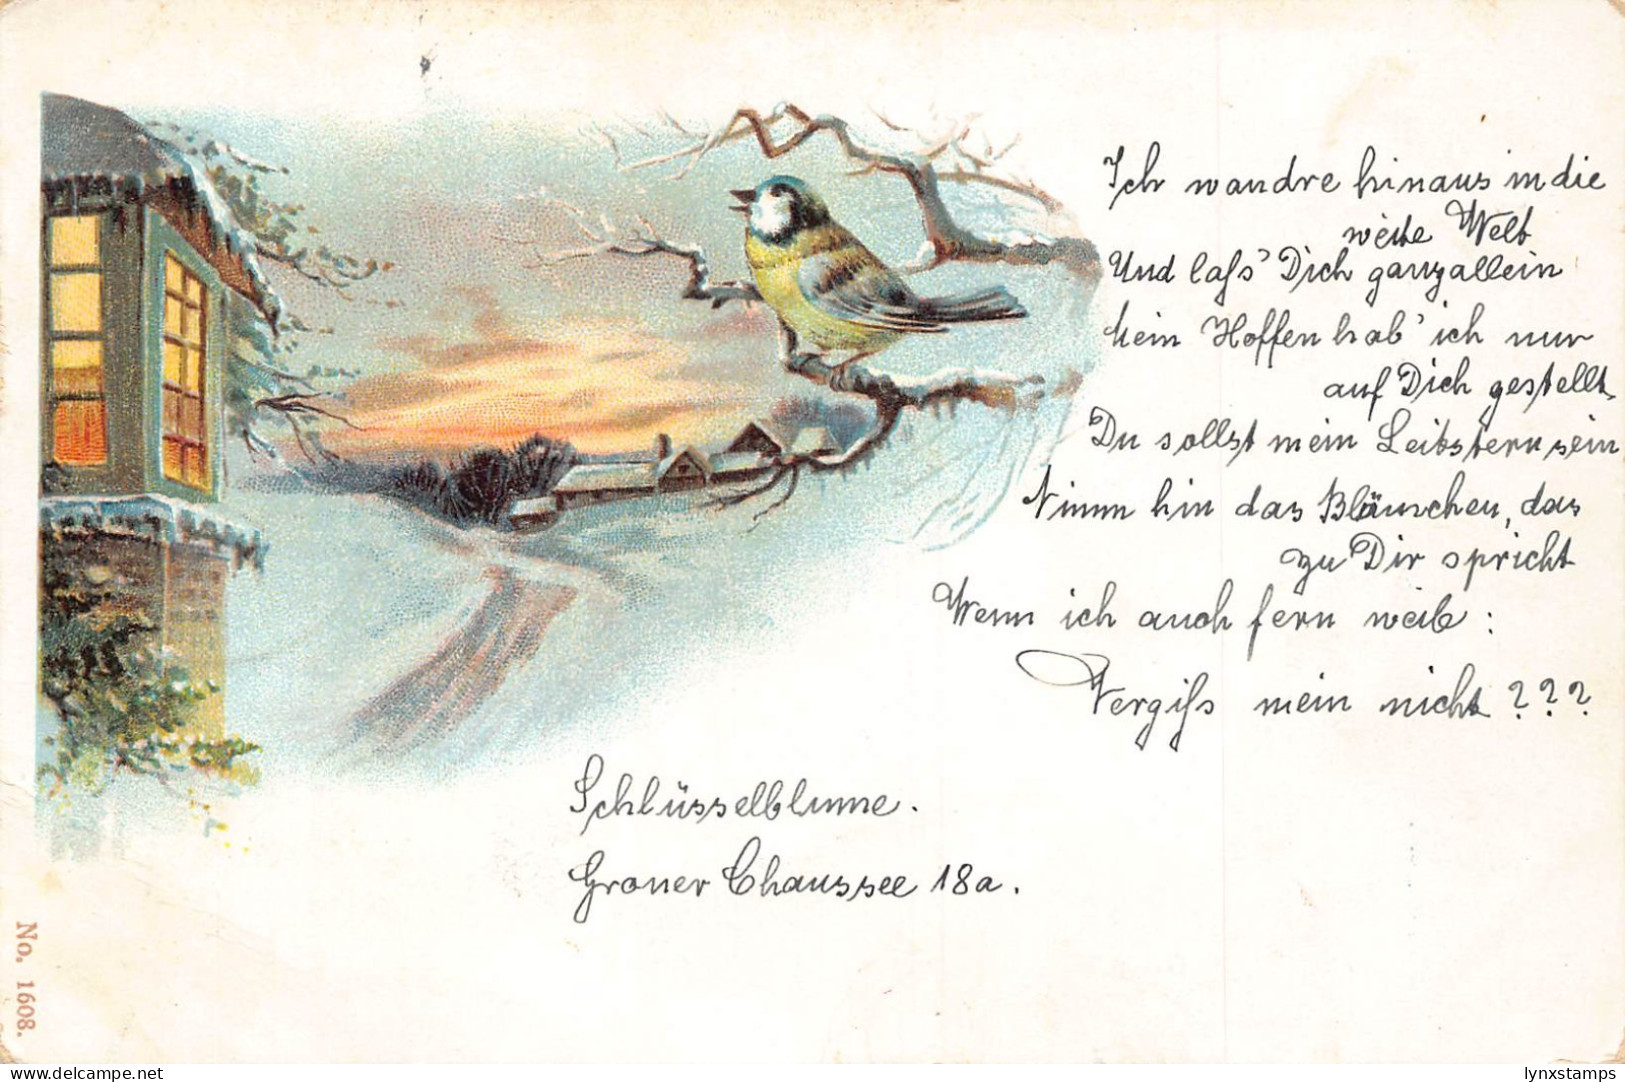 Ich wandre hinaus in die
weite Welt
Und laſs' Dich ganz allein
Mein Hoffen hab' ich nur
auf Dich gestellt,
Du sollst mein Leitstern sein
Nimm hin das Blümchen, das
zu Dir spricht
Wenn ich auch fern weil:
Vergiſs mein nicht???
Schlüsselblume.
Groner Chaussee 18a.
No. 1608.
www.delcampe.net
lynxstamps